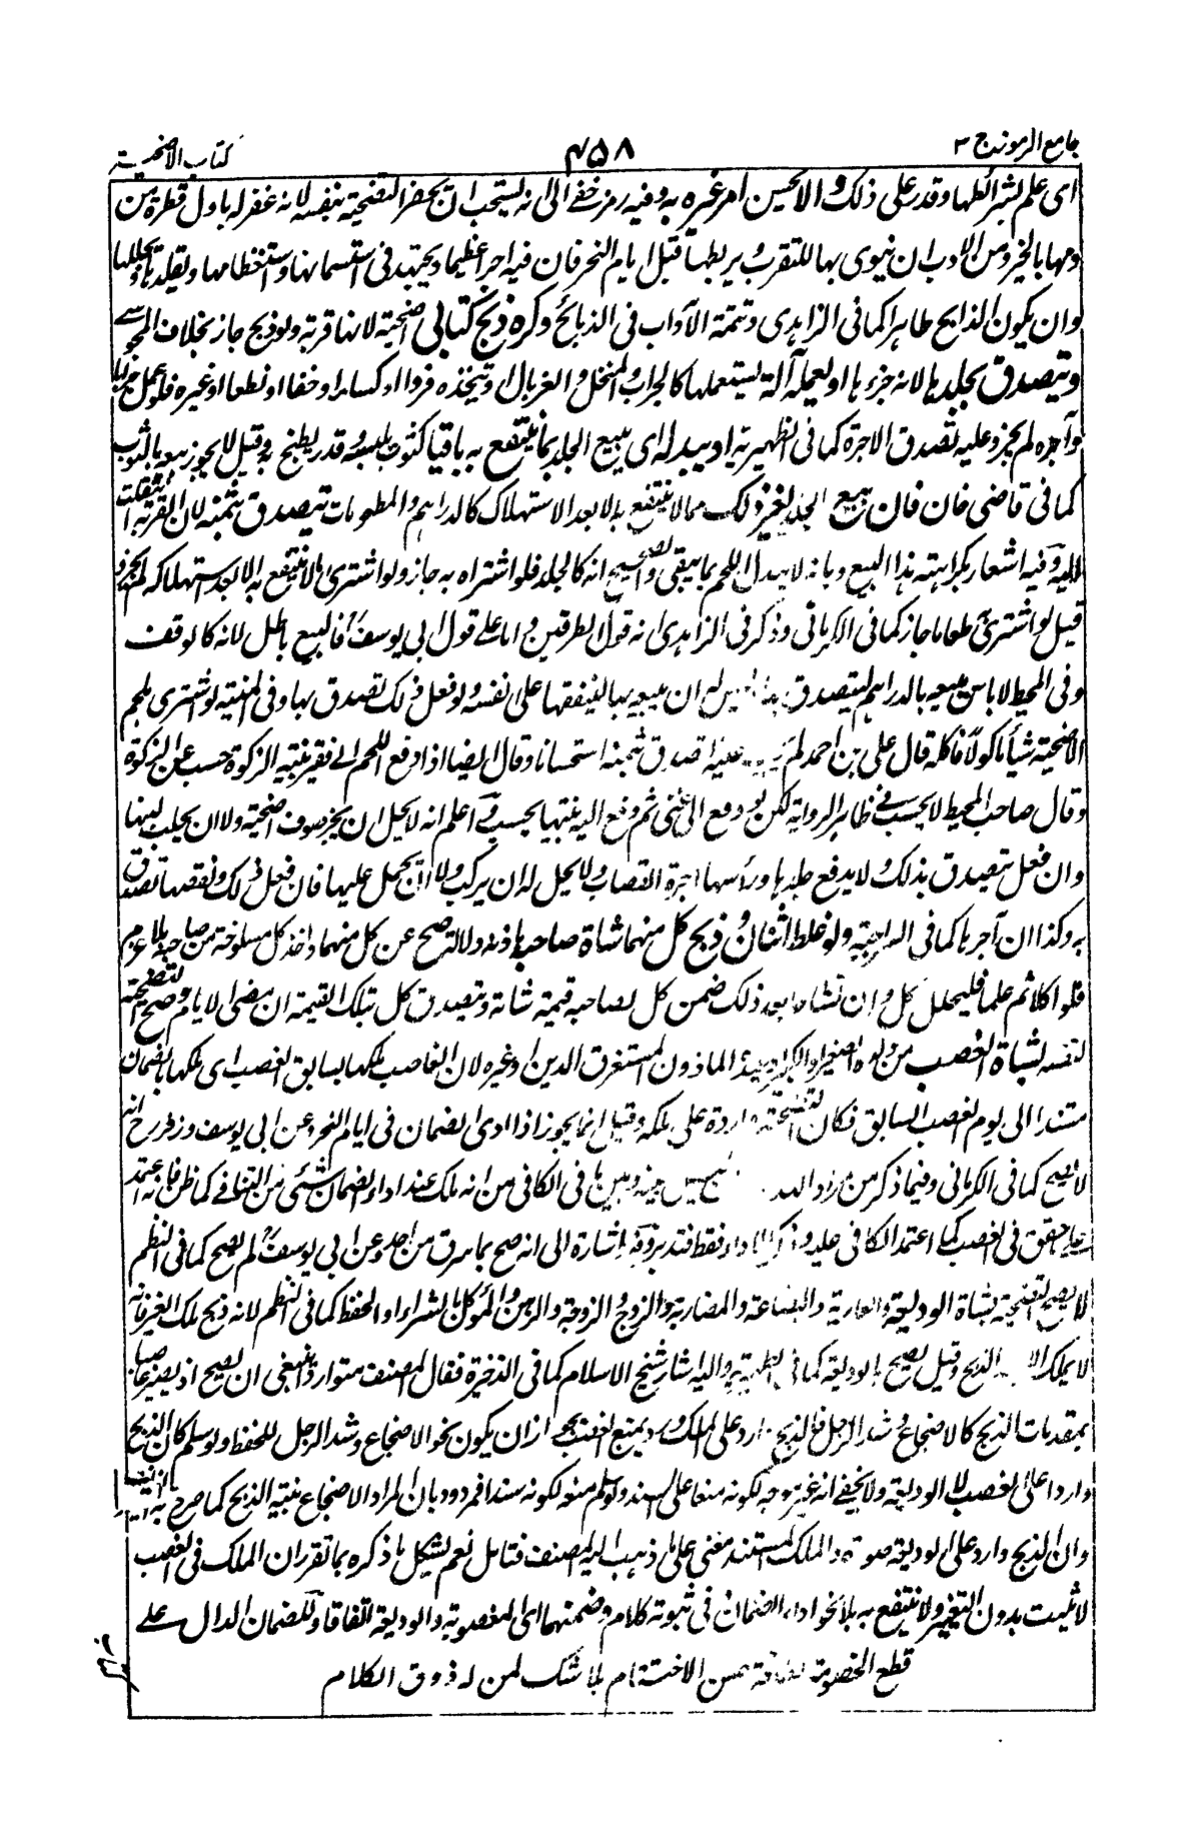 جامع الرموز ج ٣
٤٥٨
كتاب الاضحية
اى علم بشرائطها وقدر على ذلك والا يحسن امر غيره به وفيه رمز خفے الى انه يستحب ان يحضر التضحية بنفسه لانه غفر له باول قطرة من
دمها بالخبر ومن الادب ان ينوى بها للتقرب ويربطها قبل ايام النحر فان فيه اجرا عظيما ويجتهد فى استسمانها واستعظامها وتقليدها وتجليلها
وان يكون الذابح طاهرا كما فى الزاهدى وتتمة الآداب فى الذبائح وكره ذبح كتابى اضحية لانها قربة ولو ذبح جاز بخلاف المجوسے
ويتصدق بجلدها لانه جزءها او يعمله آلة يستعملها كالجراب والمنخل والغربال او يتخذه فروا او كساء او خفا او نطعا او غيره فلو عمل جرابا
وآجره لم يجز وعليه تصدق الاجرة كما فى الظهيرية او يبدله اى يبيع الجلد بما ينتفع به باقيا كثوب يلبسه وقدر يطبخ به وقيل لا يجوز بيعه بالثوب
كما فى قاضى خان فان بيع الجلد لغير ذلك مما لا ينتفع به الا بعد الاستهلاك كالدراهم والمطعومات يتصدق بثمنه لان القربة انتقلت
اليه وفيه اشعار بكراهة هذا البيع وبانه لا يبدل اللحم بما يبقى والصحيح انه كالجلد فلو اشتراه به جاز ولو اشترى ما لا ينتفع به الا بعد استهلاكه لم يجز و
قيل لو اشترى به طعاما جاز كما فى الكرمانى وذكر فى الزاهدى انه قول الطرفين واما على قول ابى يوسف فالبيع باطل لانه كالوقف
وفى المحيط لا باس ببيعه بالدراهم ليتصدق بها وليس له ان يبيعه بها لينفقها على نفسه ولو فعل ذلك تصدق بها وفى المنية لو اشترى بلحم
الاضحية شيأ ماكولا فاكله قال على بن احمد لم يجب عليه تصدق ثمنه استحسانا وقال ايضا اذا دفع اللحم الى فقير بنية الزكوة حسب عن الزكوة
وقال صاحب المحيط لا يحسب فى ظاهر الرواية لكن لو دفع الى غنى ثم دفع اليه بنيتها يحسب واعلم انه لا يحل ان يجز صوف اضحية ولا ان يحلب لبنها
وان فعل يتصدق بذلك ولا يدفع جلدها ورأسها اجرة القصاب ولا يحل له ان يركب ولا ان يحمل عليها فان فعل ذلك ونقصها تصدق
به وكذا ان آجرها كما فى ولو غلط اثنان وذبح كل منهما شاة صاحبه باذنه دلالة صح عن كل منهما واخذ كل مسلوخة من صاحبه بلا غرم
فلو اكلا ثم علما فليحلل كل وان تشاحا بعد ذلك ضمن كل لصاحبه قيمة شاته وتصدق كل بتلك القيمة ان مضى الايام وصح التضحية
لنفسه بشاة الغصب من ولده الصغير او الكبير او عبده الماذون المستغرق الدين او غيره لان الغاصب ملكها بسابق الغصب اى ملكها بالضمان
مستندا الى يوم الغصب السابق فكان التضحية واردة على ملكه وقيل انما يجوز اذا ادى الضمان فى ايام النحر وعن ابى يوسف وزفر رح انه
لا يصح كما فى الكرمانى وفيما ذكر من بينه وبين ما فى الكافى من انه ملك عند اداء الضمان شئ من التنافے كما ظن فانه اعتمد
على ما حقق فى الغصب كما اعتمد الكافى عليه فقط فتدبر وفيه اشارة الى انه صح بما سرق من احد وعن ابى يوسف لم يصح كما فى النظم
لا يصح التضحية بشاة الوديعة والعارية والبضاعة والمضاربة والزوج والزوجة والرهن والموكل بالشراء او الحفظ كما فى النظم لانه ذبح ملك الغير فانه
لا يملك الا الذبح وقيل يصح الوديعة كما فى الظهيرية واليه اشار شيخ الاسلام كما فى الذخيرة فقال المصنف متواردا ينبغى ان يصح اذ يصير غاصبا
بمقدمات الذبح كالاضجاع وشد الرجل فالذبح وارد على الملك ويمنع الغصب لجواز ان يكون نحو الاضجاع وشد الرجل للحفظ ولو سلم كان الذبح
واردا على الغصب لا الوديعة ولا يخفے انه غير موجه لكونه منعا على السند ولو سلم منعه لكونه سندا فمردود بان المراد الاضجاع بنية الذبح كما صرح به
وان الذبح وارد على الوديعة صورة والملك المستند مغنى على ما ذهب اليه المصنف فتامل نعم يشكل ما ذكره بما تقرر ان الملك فى الغصب
لا يثبت بدون التغير ولا ينتفع به بلا نحو اداء الضمان فى ثبوته كلام وضمنهما اى المغصوبة والوديعة اتفاقا وللضمان الدال على
قطع الخصومة حسن الاختتام بلا شك لمن له ذوق الكلام